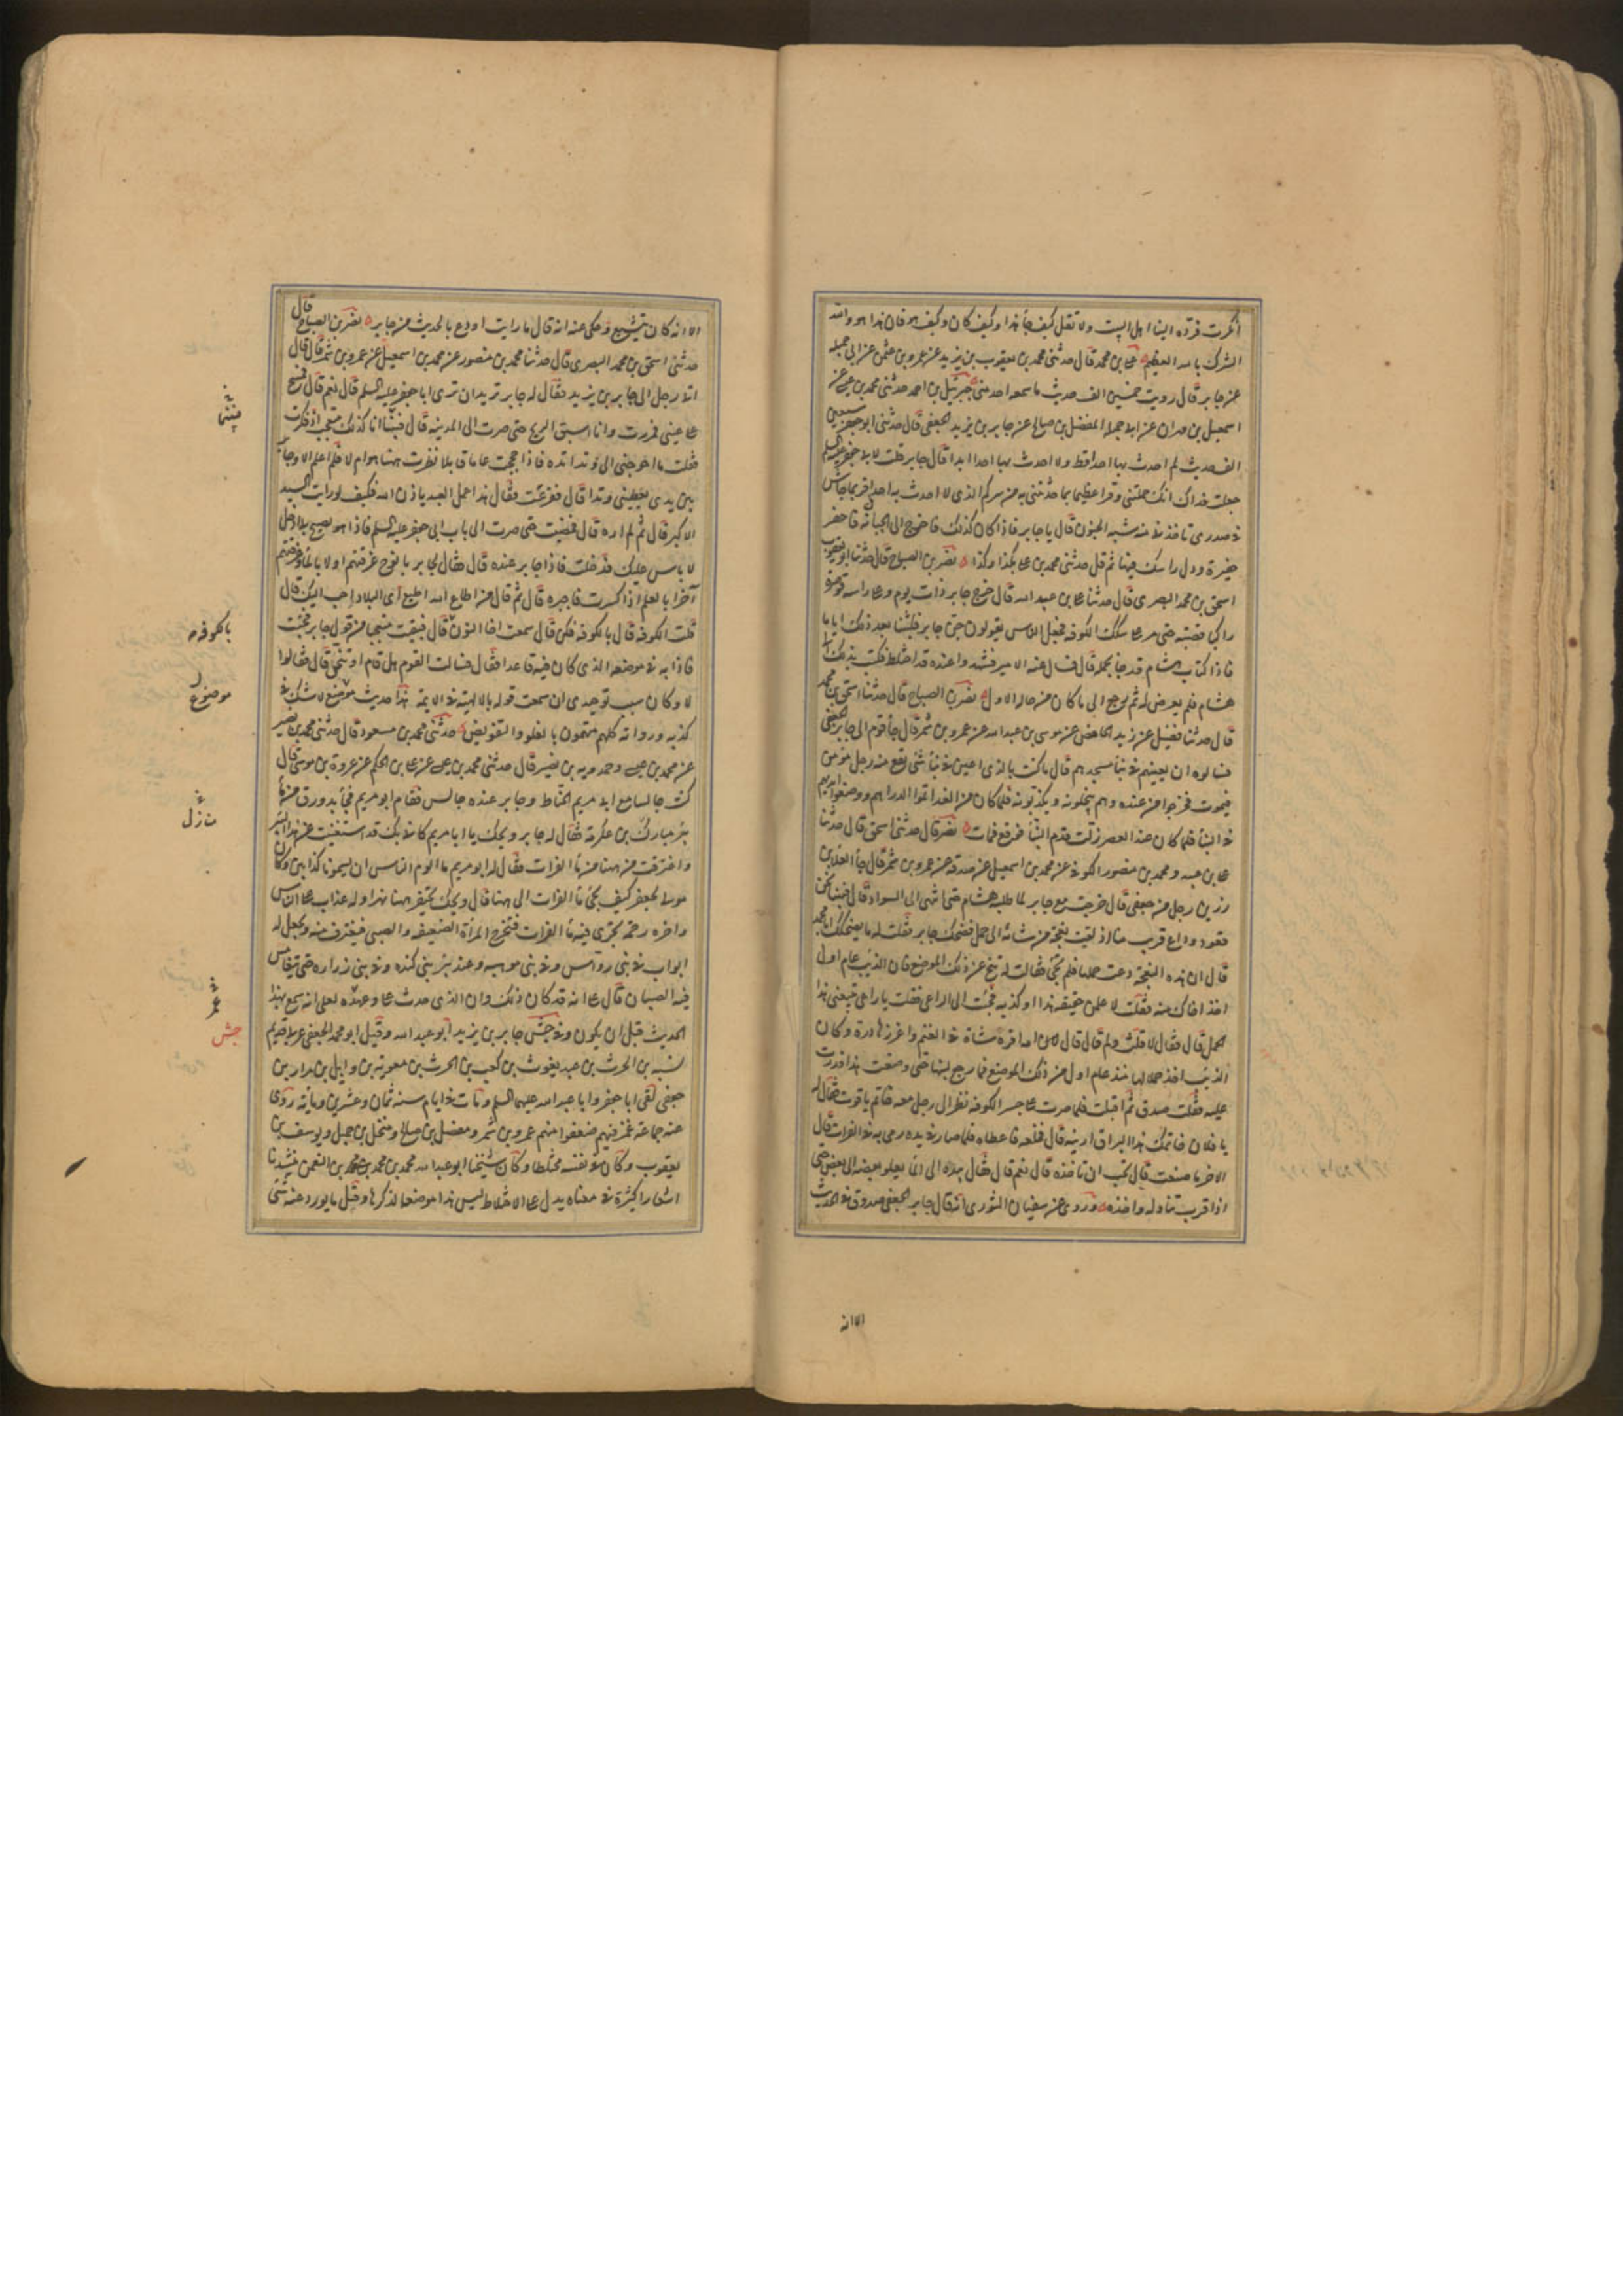 انكرت فرده الينا اهل البيت ولا تقل كيف جاء هذا وكيف كان وكيف هو فان هذا هو والله
الشرك بالله العظيم علي بن محمد قال حدثني محمد بن يعقوب بن يزيد عن عمرو بن عثمن عن ابي جميله
عن جابر قال رويت خمسين الف حديث ما سمعه احد مني جبرئيل بن احمد حدثني محمد بن عيسى عن
اسمعيل بن مهران عن ابي جميله المفضل بن صالح عن جابر بن يزيد الجعفي قال حدثني ابو جعفر سبعين
الف حديث لم احدث بها احدا قط ولا احدث بها احدا ابدا قال جابر قلت لابي جعفر عليه السلم
جعلت فداك انك حملتني وقرا عظيما بما حدثتني به من سركم الذي لا احدث به احدا فربما جاش
في صدري تاخذني منه شبه الجنون قال يا جابر فاذا كان كذلك فاخرج الى الجبانه فاحفر
حفيرة ودل راسك فيها ثم قل حدثني محمد بن علي بكذا وكذا نصر بن الصباح قال حدثنا ابو يعقوب
اسحق بن محمد البصري قال حدثنا علي بن عبد الله قال خرج جابر ذات يوم وعلى راسه قوصره
راكبا قصبته حتى مر على سكك الكوفه فجعل الناس يقولون جن جابر فلبثنا بعد ذلك اياما
فاذا كتاب هشام قد جاء بحمله قال فسال عنه الامير فشهدوا عنده قد اختلط فكتب بذلك الى
هشام فلم يعرض له ثم رجع الى ما كان من حاله الاول نصر بن الصباح قال حدثنا اسحق بن محمد
قال حدثنا فضيل عن زيد الحافض عن موسى بن عبد الله عن عمرو بن شمر قال جاء قوم الى جابر الجعفي
فسالوه ان يعينهم في بناء مسجدهم قال ما كنت بالذي اعين في بناء شئ يقع منه رجل مؤمن
فيموت فخرجوا من عنده وهم يبخلونه ويكذبونه فلما كان من الغد اتموا الدراهم ووضعوا ايديهم
في البناء فلما كان عند العصر زلت قدم البناء فوقع فمات نصر قال حدثني اسحق قال حدثنا
علي بن عبيد ومحمد بن منصور الكوفي عن محمد بن اسمعيل عن صدقه عن عمرو بن شمر قال جاء العلا بن
رزين رجل من جعفي قال خرجت مع جابر لما طلبه هشام حتى انتهى الى السواد قال فبينا نحن
قعود وراع قريب منا اذ لقيت نعجة من شائه الى حمل فضحك جابر فقلت له ما يضحكك ابا محمد
قال ان هذه النعجة دعت حملها فلم يجئ فقالت له تنح عن ذلك الموضع فان الذيب عام اول
اخذ اخاك منه فقلت لاعلمن حقيقه هذا او كذبه فجئت الى الراعي فقلت يا راعي تبيعني هذا
الحمل قال فقال لا فقلت ولم قال قال لان امه افره شاة في الغنم واغزرها درة وكان
الذيب اخذ حملا لها منذ عام اول من ذلك الموضع فما رجع لبنها حتى وضعت هذا فدرت
عليه فقلت صدق ثم اقبلت فلما صرت على جسر الكوفه نظر الى رجل معه خاتم ياقوت فقال له
يا فلان خاتمك هذا البراق ارنيه قال فخلعه فاعطاه فلما صار في يده رمى به في الفرات قال
الاخر ما صنعت قال تحب ان تاخذه قال نعم قال فقال بيده الى الماء يعلو بعضه الى بعض حتى
اذا قرب تناوله واخذه وروى عن سفيان الثوري انه قال جابر الجعفي صدوق في الحديث
الا انه
الا انه كان يتشيع وحكى عنه انه قال ما رايت اورع بالحديث من جابر نصر بن الصباح قال
حدثني اسحق بن محمد البصري قال حدثنا محمد بن منصور عن محمد بن اسمعيل عن عمرو بن شمر قال قال
اتى رجل الى جابر بن يزيد فقال له جابر تريد ان ترى ابا جعفر عليه السلم قال نعم قال فمسح
على عيني فمررت وانا اسبق الريح حتى صرت الى المدينه قال فبينا انا كذلك متعجب اذ فكرت
فقلت ما احوجني الى وتد اتده فاذا حججت عاما قابلا نظرت ههنا هو ام لا فلم اعلم الا وجابر
بين يدي يعطيني وتدا قال ففزعت فقال هذا عمل العبد باذن الله فكيف لو رايت السيد
الاكبر قال ثم لم اره قال فمضيت حتى صرت الى باب ابي جعفر عليه السلم فاذا هو يصيح بي ادخل
لا باس عليك فدخلت فاذا جابر عنده قال فقال لجابر يا نوح غرقتهم اولا بالماء وغرقتهم
آخرا بالعلم فاذا كسرت فاجبره قال ثم قال من اطاع الله اطيع اى البلاد احب اليك قال
قلت الكوفه قال بالكوفه فكن قال سمعت اخا النون قال فبقيت متعجبا من قول جابر فجئت
فاذا به في موضعه الذي كان فيه قاعدا فقال فسالت القوم هل قام او تنحى قال فقالوا
لا وكان سبب توحيدي ان سمعت قوله بالالهية في الايمه هذا حديث موضوع لا شك في
كذبه ورواته كلهم متهمون بالغلو والتفويض حدثني محمد بن مسعود قال حدثني محمد بن نصير
عن محمد بن عيسى وحمدويه بن نصير قال حدثني محمد بن عيسى عن علي بن الحكم عن عروة بن موسى قال
كنت جالسا مع ابي مريم الحناط وجابر عنده جالس فقام ابو مريم فجاء بدورق من ماء
بئر مبارك بن عكرمة فقال له جابر ويحك يا ابا مريم كاني بك قد استغنيت عن هذا البئر
واغترفت من ههنا من ماء الفرات فقال له ابو مريم ما الوم الناس ان يسمونا كذابين وكان
مولى لجعفر كيف يجئ ماء الفرات الى ههنا قال ويحك يحتفر ههنا نهر اوله عذاب على الناس
واخره رحمة يجرى فيه ماء الفرات فتخرج المرأة الضعيفه والصبي فيغترف منه ويجعل له
ابواب في بني رواس وفي بني موهبه وعند بئر بني كنده وفي بني زراره حتى تتغامس
فيه الصبيان قال علي انه قد كان ذلك وان الذي حدث علي وعهده لعلى انه سمع بهذا
الحديث قبل ان يكون وفي جش جابر بن يزيد ابو عبد الله وقيل ابو محمد الجعفي عربي قديم
نسبه بن الحرث بن عبد يغوث بن كعب بن الحرث بن معوية بن وايل بن مرار بن
جعفي لقى ابا جعفر وابا عبد الله عليهما السلم ومات في ايامه سنه ثمان وعشرين ومائه روى
عنه جماعة غمز فيهم ضعفوا منهم عمرو بن شمر ومفضل بن صالح ومنخل بن جميل ويوسف بن
يعقوب وكان في نفسه مختلطا وكان شيخنا ابو عبد الله محمد بن محمد بن النعمن ينشدنا
اشعارا كثيرة في معناه يدل على الاختلاط ليس هذا موضعا لذكرها وقل ما يورد عنه شئ
بالكوفه
موضوع
جش